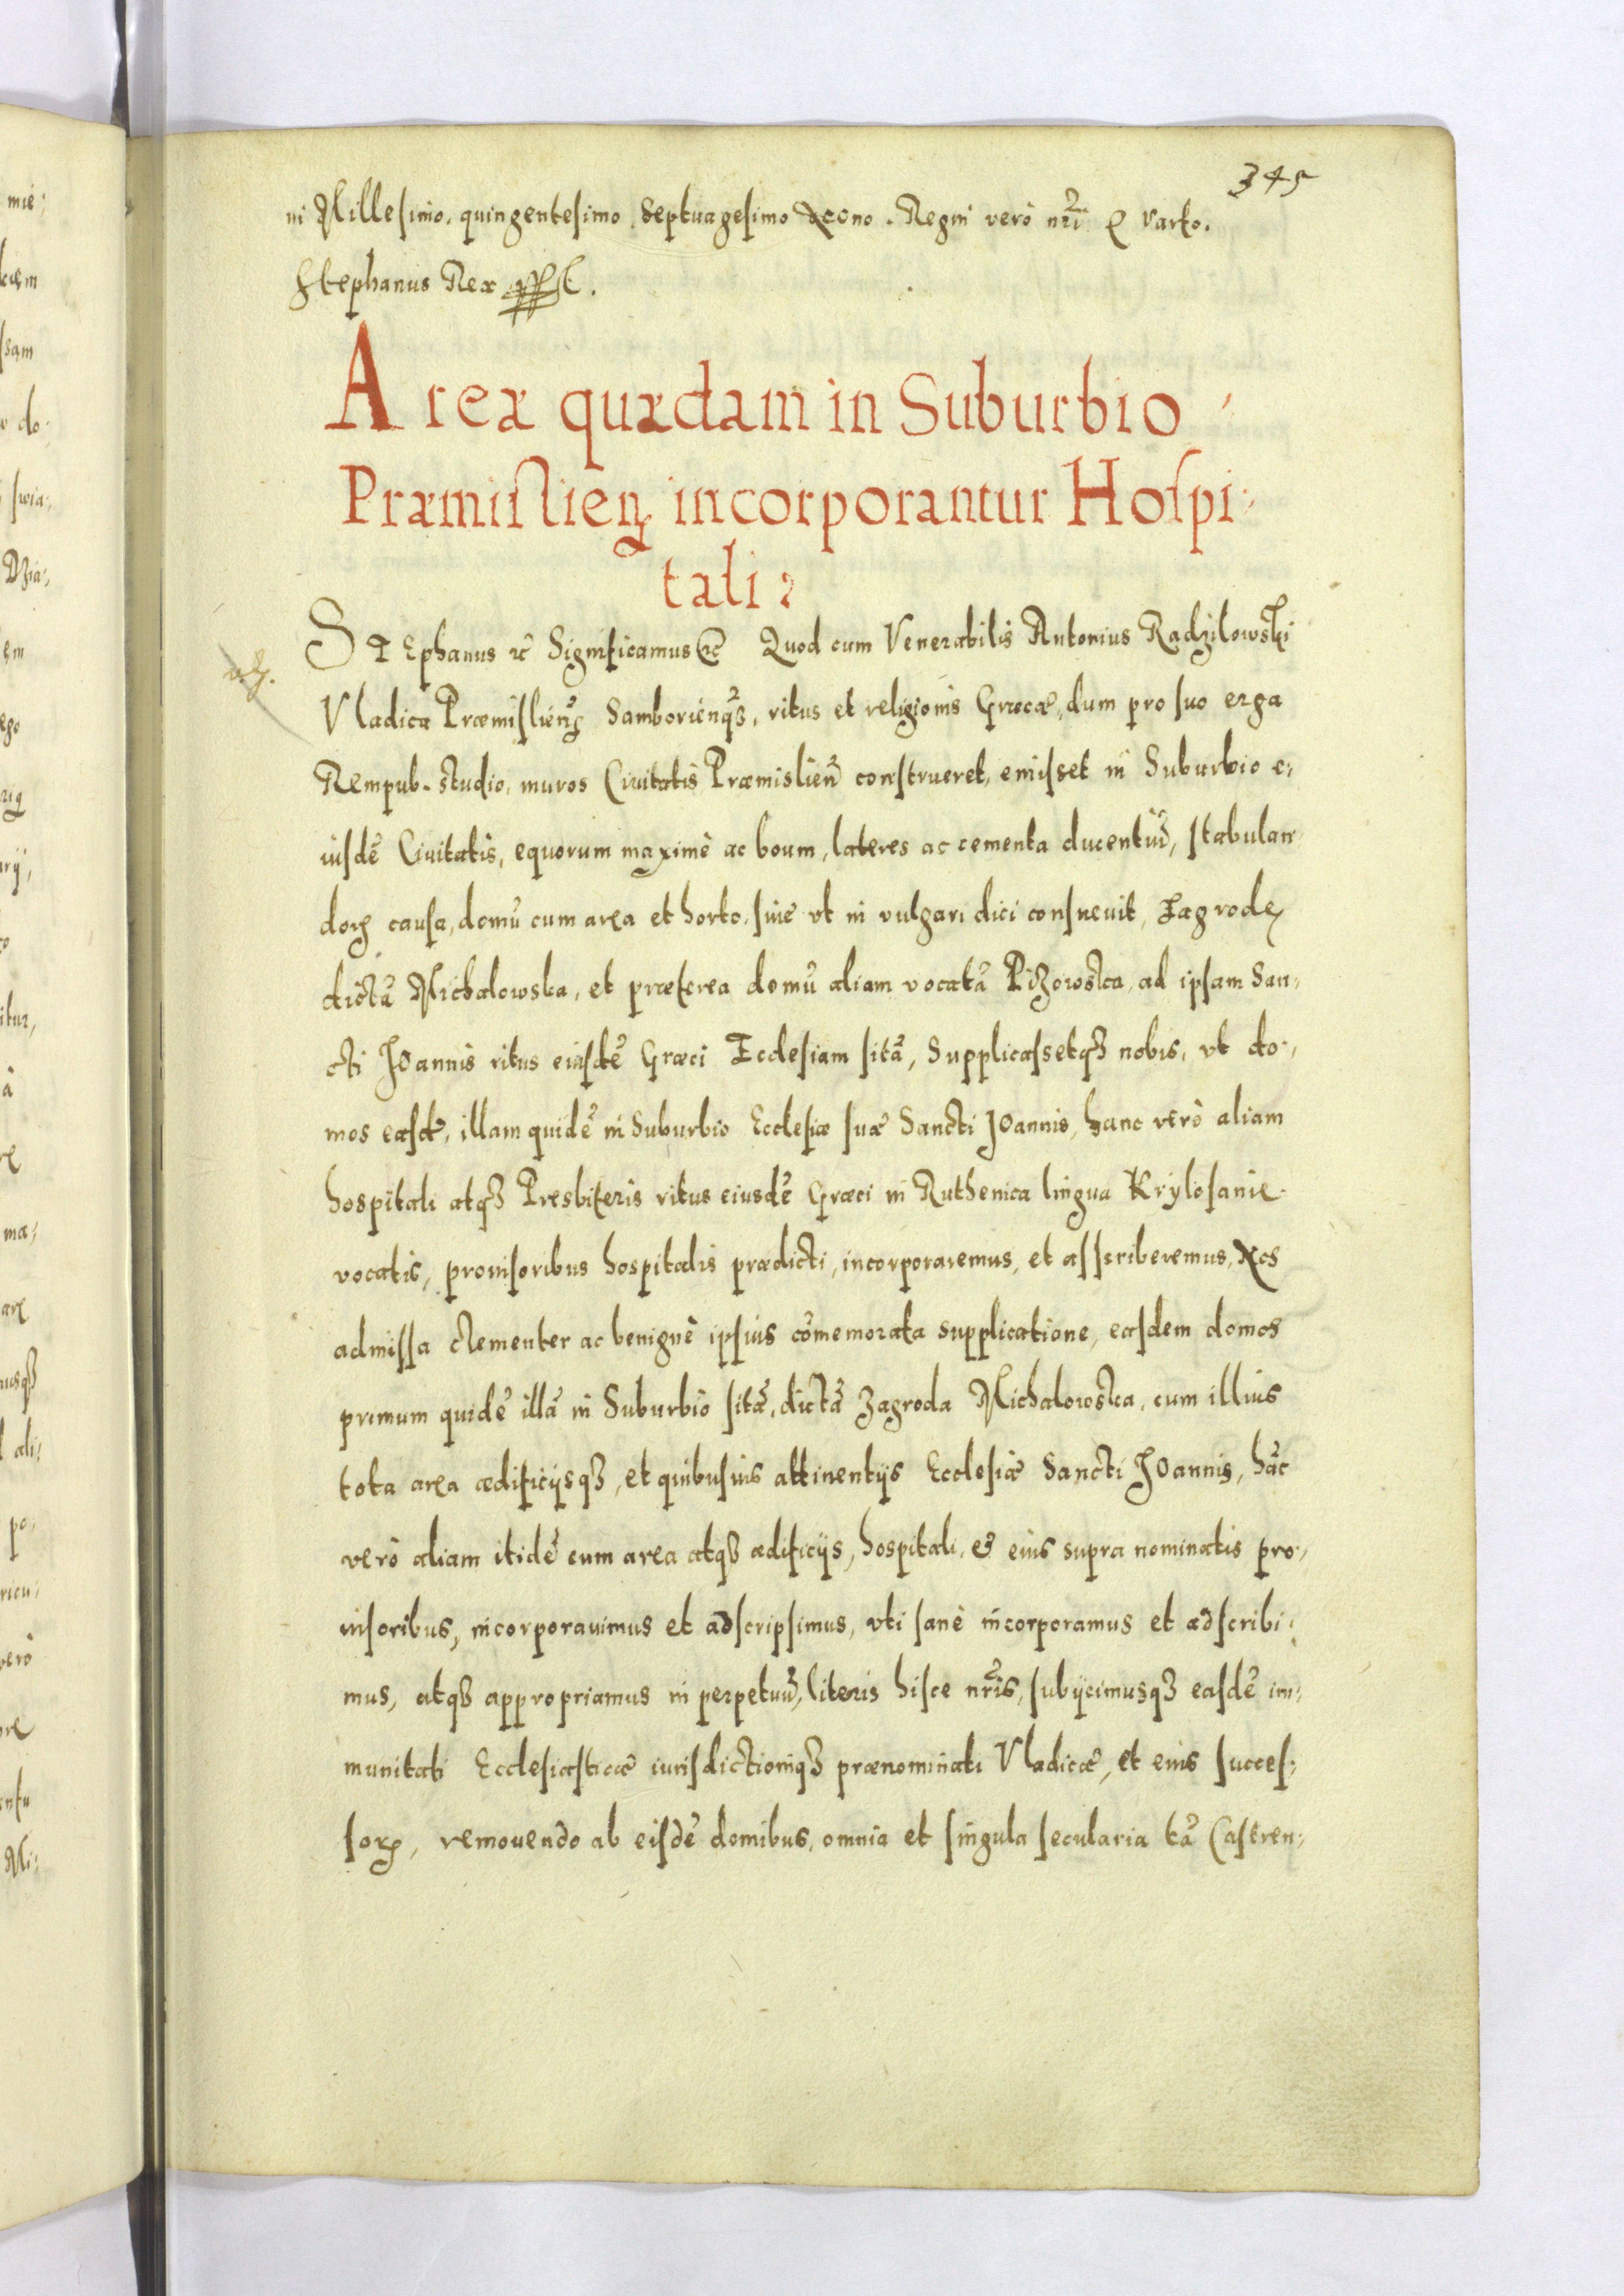 345
ni Millesimo, quingentesimo Septuagesimo Nono. Regni verò nr̃i Quarto.
Stephanus Rex sst.
Areæ quædam in Suburbio
Præmislien̄ incorporantur Hospi:
tali:
STEphanus etc̃ Significamus etc̃ Quod cum Venerabilis Antonius Radzilowski
Vladica Præmislien̄ Samborienqȝ, ritus et religionis Græcæ, dum pro suo erga
Rempub. studio, muros Ciuitatis Præmislien̄ construeret, emisset in Suburbio e:
iusdē Ciuitatis, equorum maximè ac boum, lateres ac cementa ducentiū, stabulan:
doꝝ causa, domū cum area et horto, siue vt in vulgari dici consueuit, Zagrodę
dictā Michalowska, et præterea domū aliam vocatā Pizowska, ad ipsam San:
cti Joannis ritus eiusdē Græci Ecclesiam sitā, Supplicassetqȝ nobis, vt do:
mos easdē, illam quidē in Suburbio Ecclesiæ suæ Sancti Joannis, hanc verò aliam
hospitali atqȝ Presbiteris ritus eiusdē Græci in Ruthenica lingua Krylosanie
vocatis, prouisoribus hospitalis prædicti, incorporaremus, et asscriberemus, Nos
admissa clementer ac benignè ipsius cōmemorata supplicatione, easdem domos
primum quidē illā in Suburbio sitā, dictā Zagroda Michalowska, cum illius
tota area ædificijsqȝ, et quibusuis attinentijs Ecclesiæ Sancti Joannis, hāc
verò aliam itidē cum area atqȝ ædificijs, hospitali, & eius supra nominatis pro:
uisoribus, incorporauimus et adscripsimus, vti sanè incorporamus et adscribi:
mus, atqȝ appropriamus in perpetuū, literis hisce nr̃is, subijcimusqȝ easdē im:
munitati Ecclesiasticæ iurisdictioniqȝ prænominati Vladicæ, et eius succes:
soꝝ, remouendo ab eisdē domibus, omnia et singula secularia tā Castren: